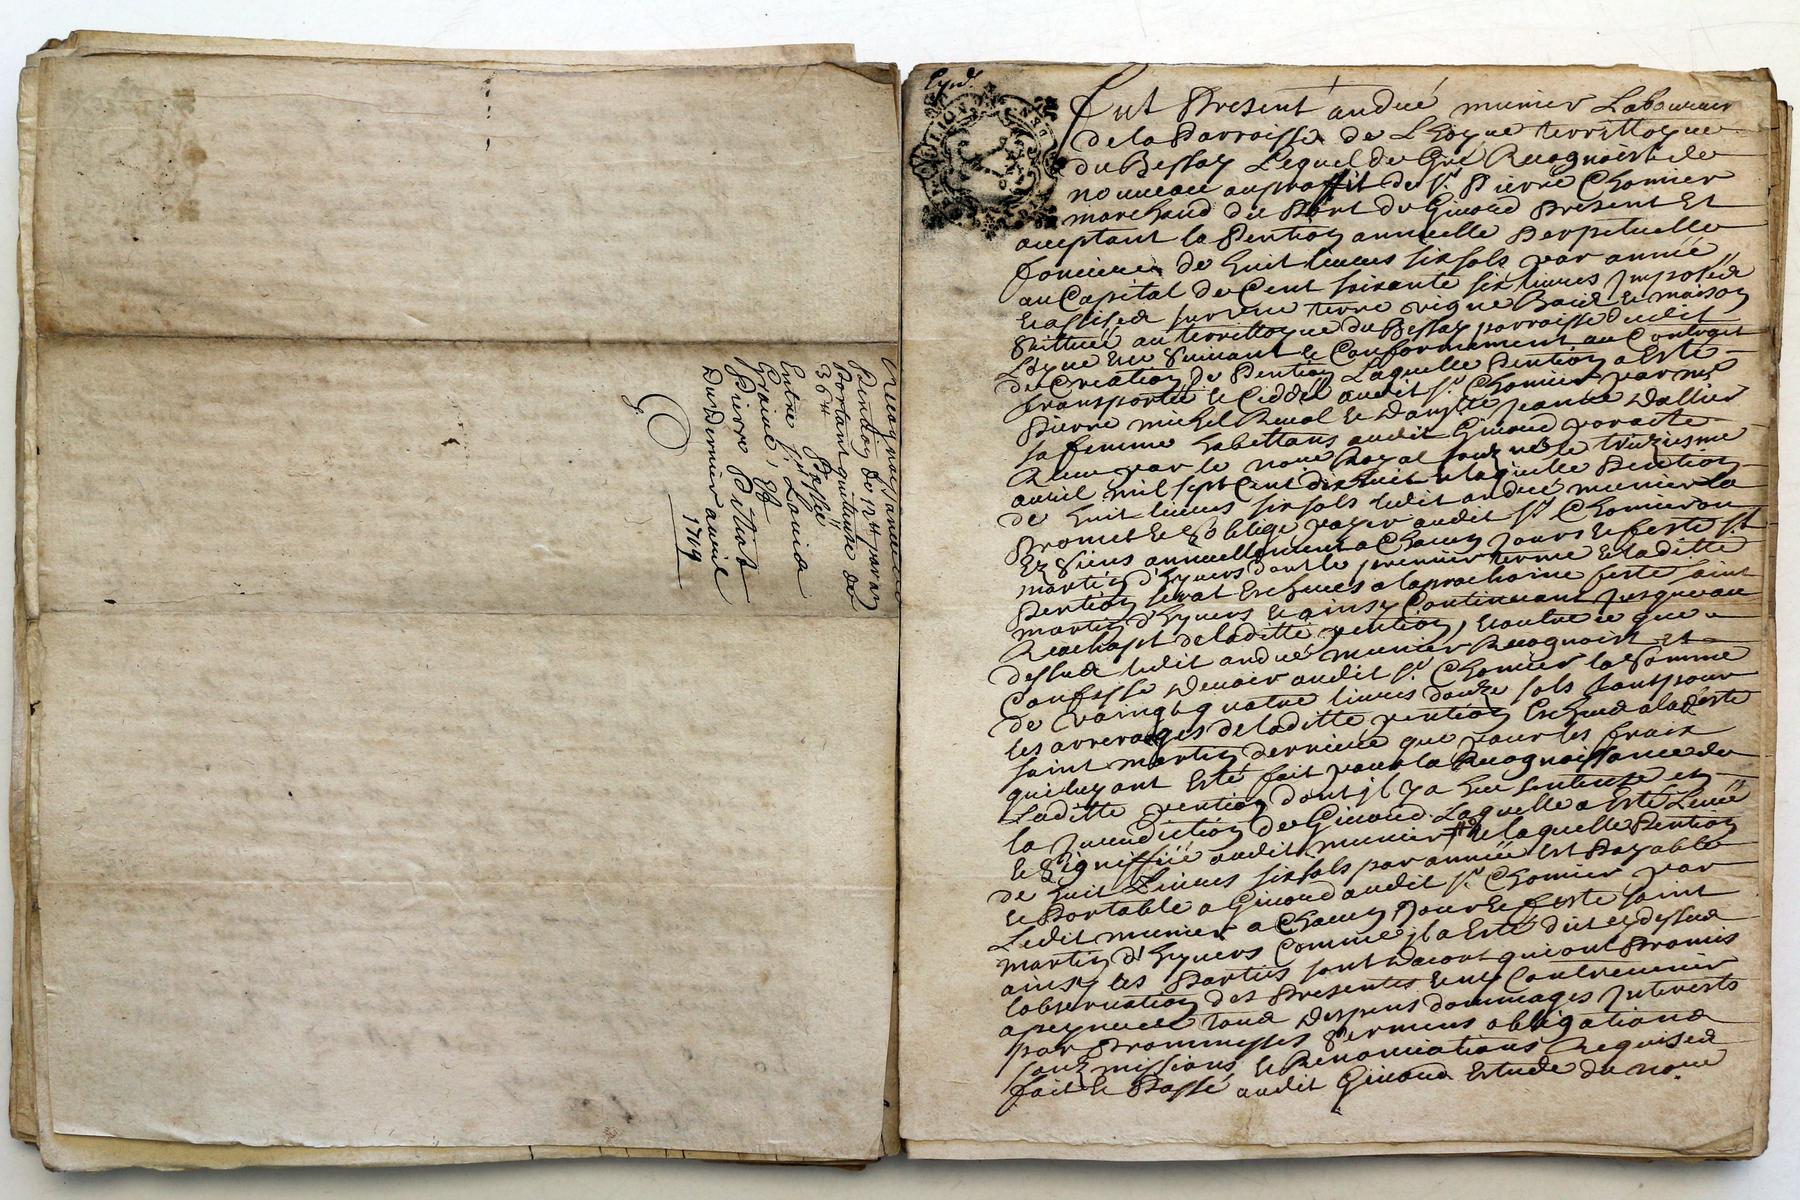 Pention de 12tt par an
Portant quittance de
36tt
Entre Sr Louis
Pierre Pitiot
Du dernier avril
1709
Expd.
Fut Present andué munier Laboureur
de la Parroisse de L'Eyue territtoyre
du Bessay Lequel de Gré Recognoist de
nouveau au proffit de Sr Pierre Chomier
marchand du Port de Givord Present Et
aceptant la Pention annuelle Perpetuelle
fonciere de huit livres six sols par année
au Capital de Cent soixante six livres Imposée
Et assise sur une terre vigne Et maison
scittuée au territtoyre du Bessay parroisse dudit
suivant Et Conformement au Contrait
de Création de Pention Laquelle Pention a Esté
transportée Et Ceddée audit Sr Chomier par me
Pierre michel Et Jeanne
sa femme habittans audit Givord par acte
Receu par le nore Royal souzné le treizieme
avril mil sept Cent dix huit Et laquelle Pention
de huit livres six sols ledit andué munier la
Promet Et Oblige payer audit Sr Chomier ou
Ez siens annuellement a Chacun Jour Et feste St
martin d'hyvers dont le premier terme de laditte
Pention serat Escheus a la prochaine feste saint
martin d'hyvers Et ainsy Continuant jusqu'au
Reachapt de laditte pention, Et outre ce que
dessus ledit andué munier Recognoist Et
Confesse devoir audit Sr Chomier la somme
de vaingt quatre livres douze sols tant pour
les arrerages de laditte pention Escheus a la feste
saint martin derniere que pour les fraix
qui luy ont Esté fait pour la Recognoissance de
Laditte pention dont il y a Eu sentence en
la Jurisdiction de Givord Laquelle a Esté Levée
Et signiffiée audit munier Et laquelle Pention
de huit Livres six sols par année Est Payable
Et Portable a Givord audit Sr Chomier par
Ledit munier a Chacun Jour Et feste saint
martin d'hyvers Comme il a Esté dit cy dessus
ainsy les Parties sont d'acort qui ont Promis
l'observation des Presentes Et n'y Contrevenir
a peyne de tous despens dommages Interests
par Prommesses sermens obligations
souzmissions Et Renonciations Requises
fait Et Passé audit Givord Estude du nore